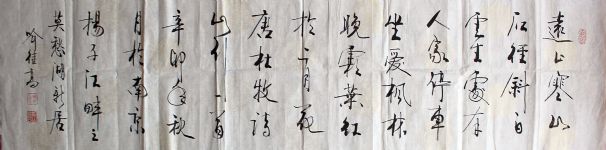 遠上寒山
石徑斜白
雲生處有
人家停車
坐愛楓林
晚霜葉紅
於二月花
唐杜牧詩
山行一首
辛卯年秋
月於南京
揚子江畔之
莫愁湖新居